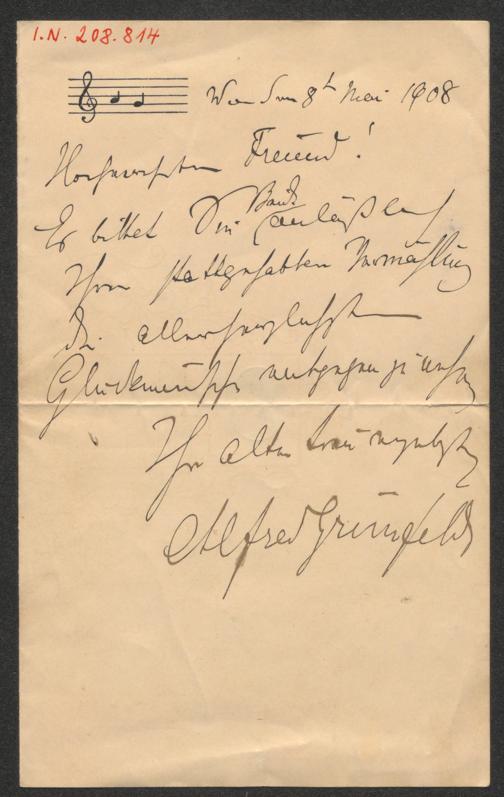 I.N. 208.814
Wien den 8t Mai 1908
Hochverehrter Freund!
Es bittet Sie
anläßlich
Ihrer stattgehabten Vermählung
die allerherzlichsten
Glückwünsche entgegen zu nehmen
Ihr alter treu ergebenster
Alfred Grünfeld